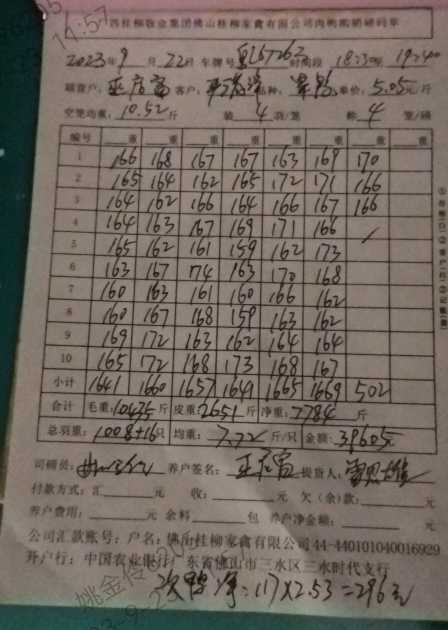 西桂柳牧业集团佛山桂柳家禽有限公司肉鸭购销磅码单
2023年9月22日 车牌号 时间段 18:30 19:40
磺鸭户: 客户: 品种: 单价: 5.05元/斤
空笼均重: 10.52斤 装 4 只/笼 称 4 笼/磅
编号 重 重 重 重 重 重 重 重
1 166 168 167 167 163 169 170
2 165 164 162 165 172 171 166
3 164 162 166 164 166 167 166
4 164 163 167 169 171 166
5 165 162 161 159 162 173
6 163 167 174 163 170 168
7 160 163 161 160 166 162
8 160 167 168 159 163 162
9 169 172 163 162 164 164
10 165 172 168 173 168 167
小计 1641 1660 1657 1641 1665 1669 502
合计 毛重: 10435斤 皮重: 2651斤 净重: 7784 斤
总羽重: 1008+16只 均重: 7.72斤/只 金额: 39605元
司磅员: 养户签名: 提货人:
付款方式: 汇 元 收: 元 欠(余)款: 元
养户费用: 元 余料 包 养户净金额: 元
公司汇款账号: 户名: 佛山桂柳家禽有限公司44-440101040016929
开户行: 中国农业银行广东省佛山市三水区三水时代支行
次鸭净: 117×2.53=296元